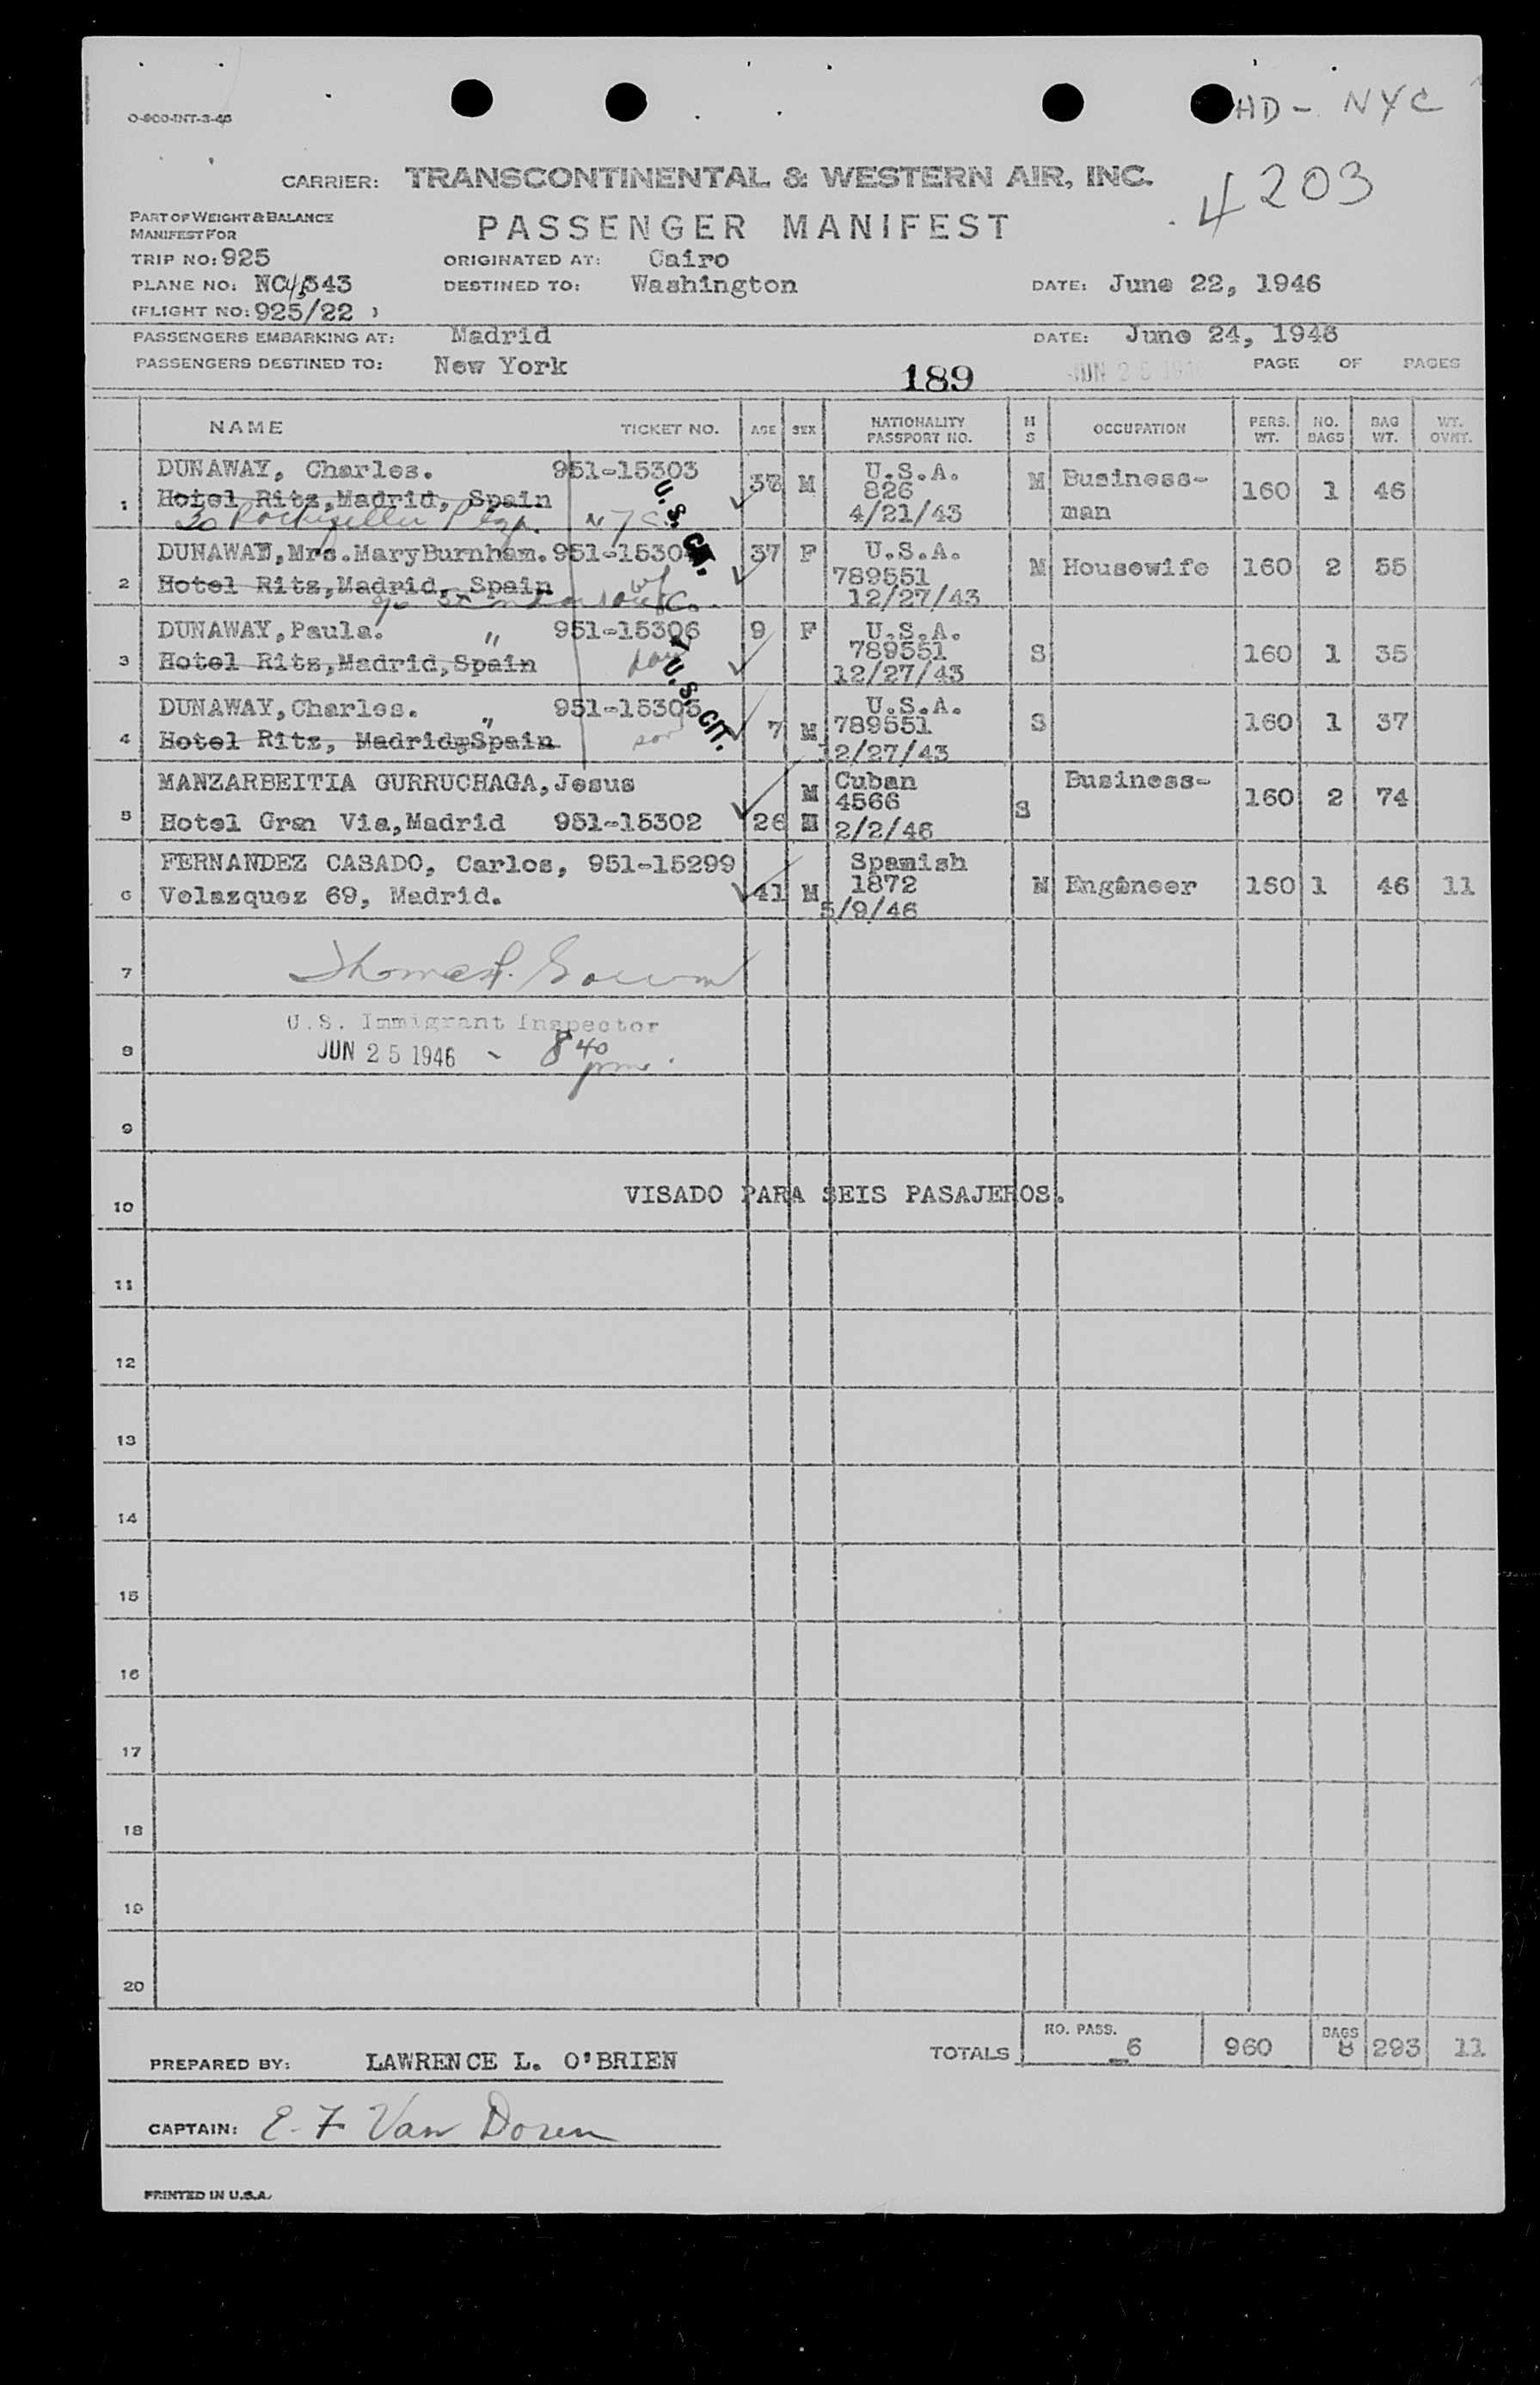 HD - NYC
O-900-INT-3-46
CARRIER: TRANSCONTINENTAL & WESTERN AIR, INC.
4203
PART OF WEIGHT & BALANCE
MANIFEST FOR
PASSENGER MANIFEST
TRIP NO: 925 ORIGINATED AT: Cairo
PLANE NO: NC45343 DESTINED TO: Washington DATE: June 22, 1946
(FLIGHT NO: 925/22 )
PASSENGERS EMBARKING AT: Madrid DATE: June 24, 1946
PASSENGERS DESTINED TO: New York 189 JUN 25 1946 PAGE OF PAGES
NAME TICKET NO. AGE SEX NATIONALITY PASSPORT NO. M S OCCUPATION PERS. WT. NO. BAGS BAG WT. WT. OVHT.
DUNAWAY, Charles. 951-15303 U.S.A.
1 Hotel Ritz, Madrid, Spain M 826 M Business- 160 1 46
30 Rockefeller Plza. NYC 4/21/43 man
U.S. CIT.
DUNAWAY, Mrs. Mary Burnham. 951-1530 37 F U.S.A.
2 Hotel Ritz, Madrid, Spain 789551 M Housewife 160 2 55
12/27/43
DUNAWAY, Paula. " 951-15306 9 F U.S.A.
3 Hotel Ritz, Madrid, Spain 789551 S 160 1 35
12/27/43
U.S. CIT.
DUNAWAY, Charles. " 951-15305 U.S.A.
4 Hotel Ritz, Madrid, Spain son 7 M 789551 S 160 1 37
12/27/43
MANZARBEITIA GURRUCHAGA, Jesus M Cuban Business-
4566 160 2 74
5 Hotel Gran Via, Madrid 951-15302 26 M 2/2/46 S
FERNANDEZ CASADO, Carlos, 951-15299 Spanish
6 Velazquez 69, Madrid. 41 M 1872 M Engineer 160 1 46 11
5/9/46
7
U.S. Immigrant Inspector
8 JUN 25 1946 - 8 40 pm.
9
10 VISADO PARA SEIS PASAJEROS.
11
12
13
14
15
16
17
18
19
20
NO. PASS. BAGS
PREPARED BY: LAWRENCE L. O'BRIEN TOTALS 6 960 8 293 11
CAPTAIN: E. F. Van Doren
PRINTED IN U.S.A.